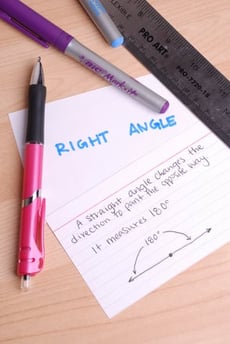 FLEXIBLE
PRO ART
PRO-7720-18
RIGHT ANGLE
A straight angle changes the
direction to point the opposite way
It measures 180°
180°